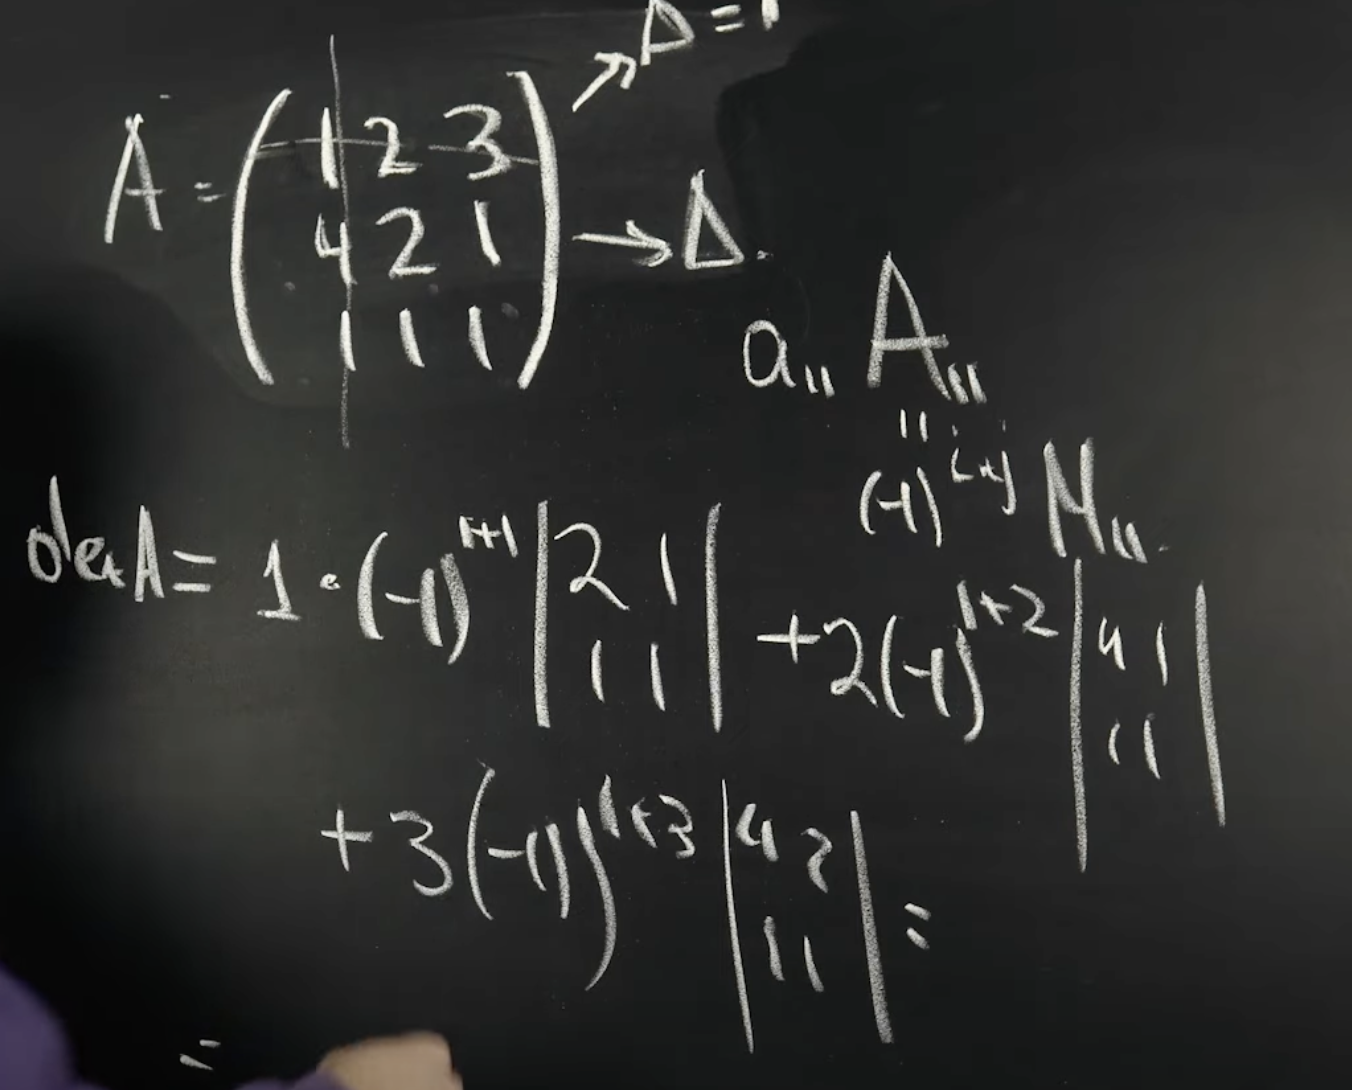 Δ = 1
A = ( 1 2 3
4 2 1
1 1 1 ) → Δ.
a₁₁ A₁₁
"
(-1)^{i+j} M₁₁.
det A = 1 · (-1)^{1+1} | 2 1
1 1 | + 2(-1)^{1+2} | 4 1
1 1 |
+ 3(-1)^{1+3} | 4 2
1 1 | =
=